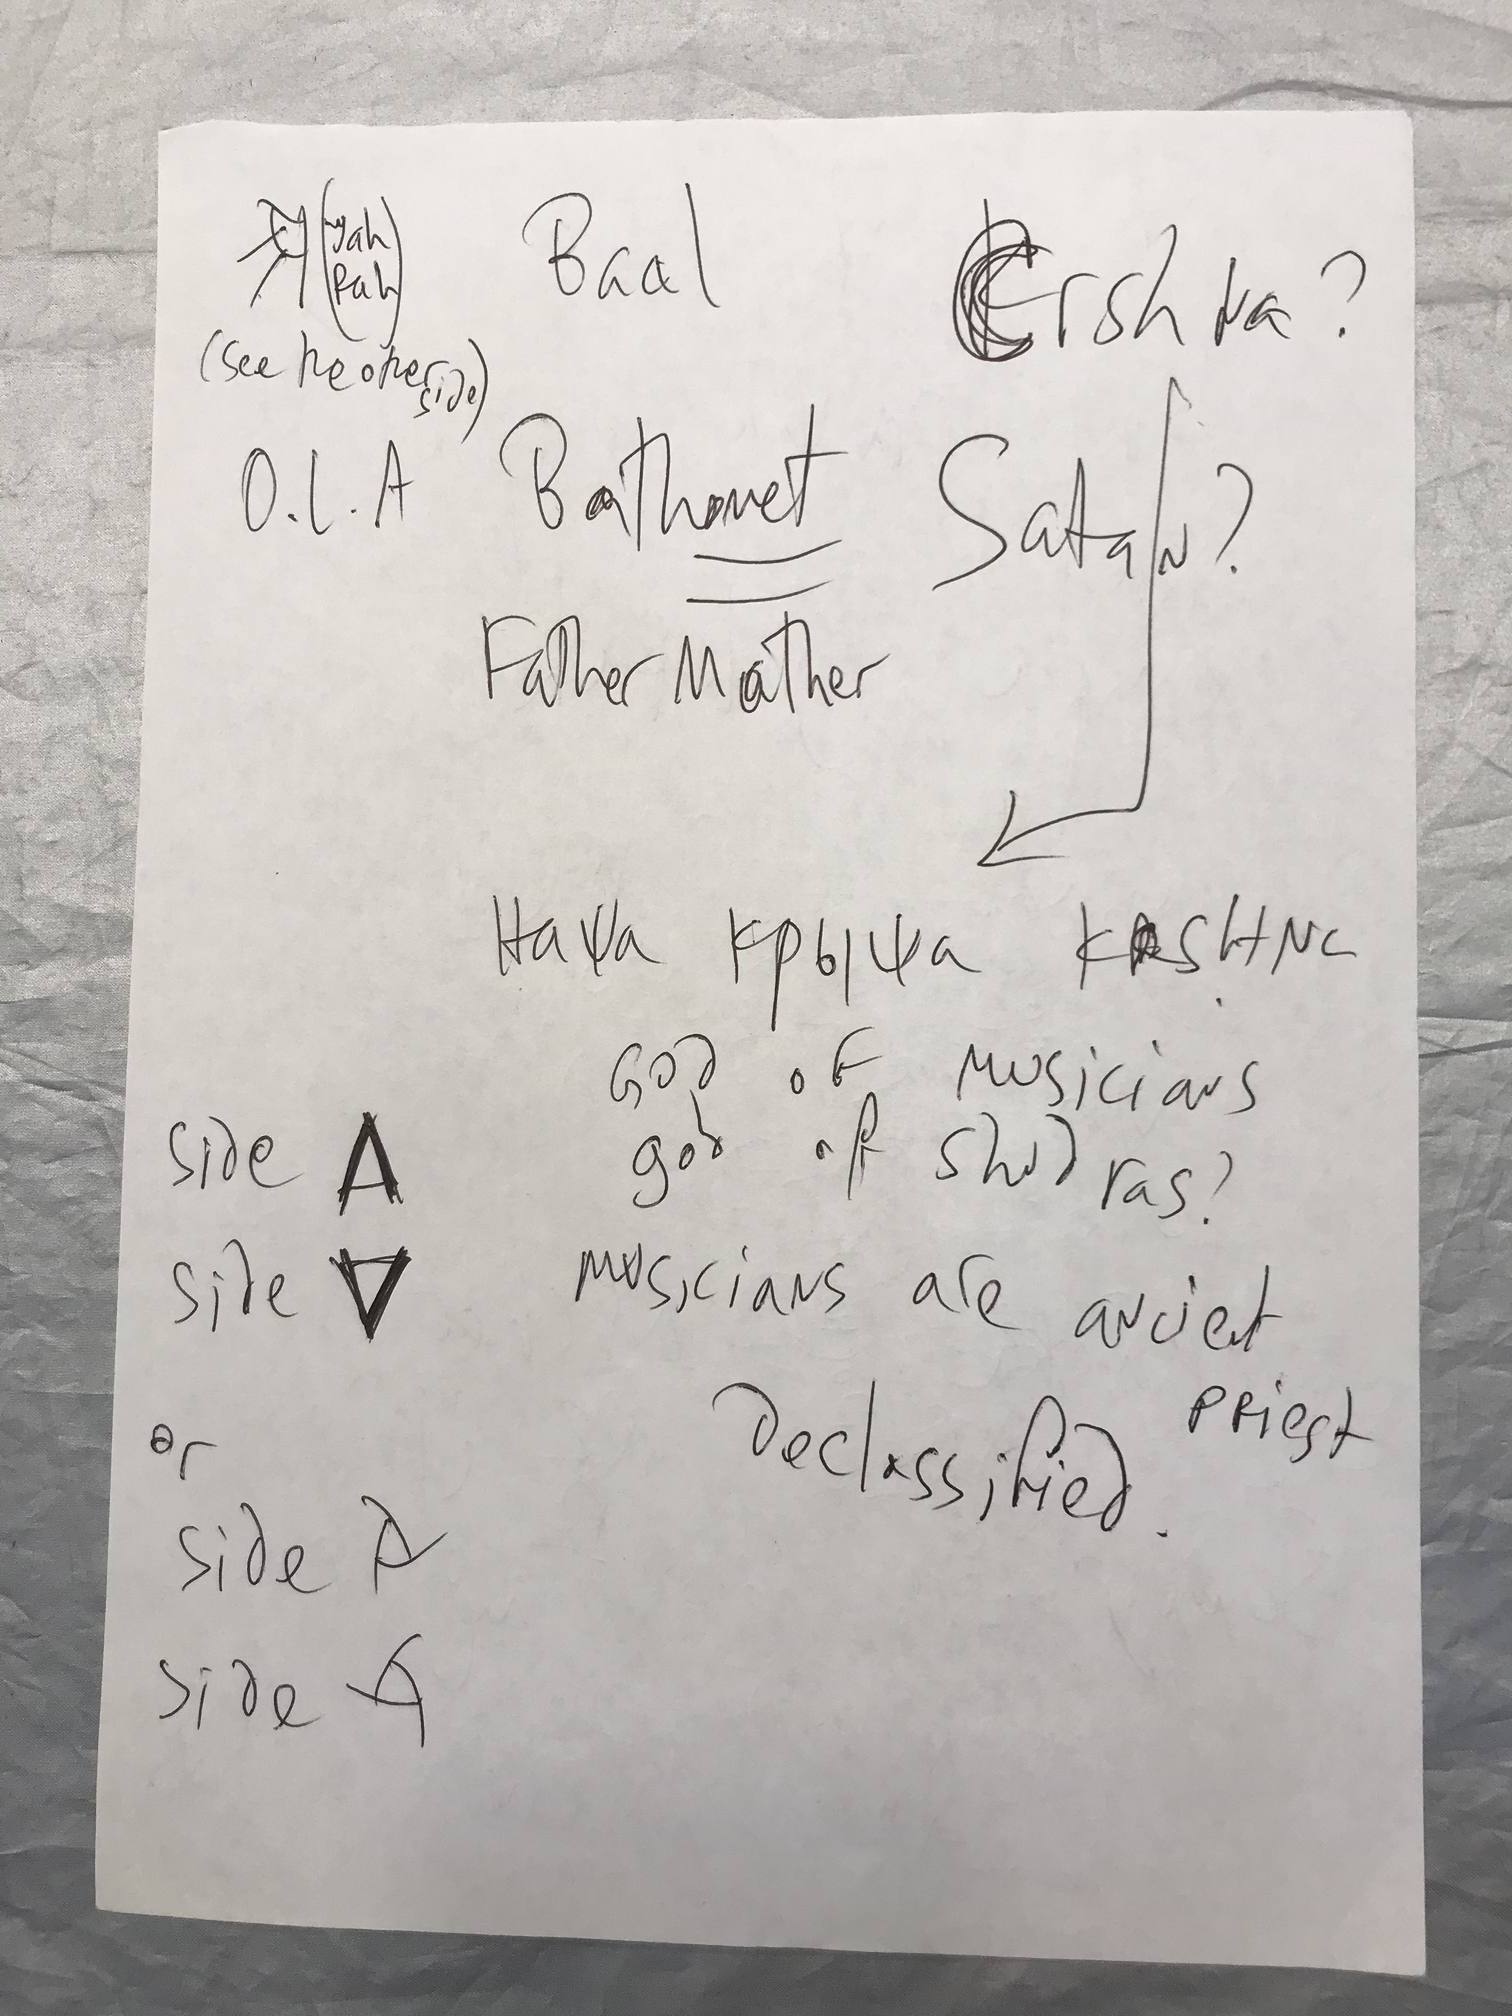 (yah
Rah)
(see the other side)
Baal
Krshna?
O.L.A
Bathomet
Satan?
Father Mother
Наша крыша KRSHNa
GOD OF Musicians
god of shudras?
musicians are anciet
Priest
Declassified.
side A
side ∀
or
side A
side